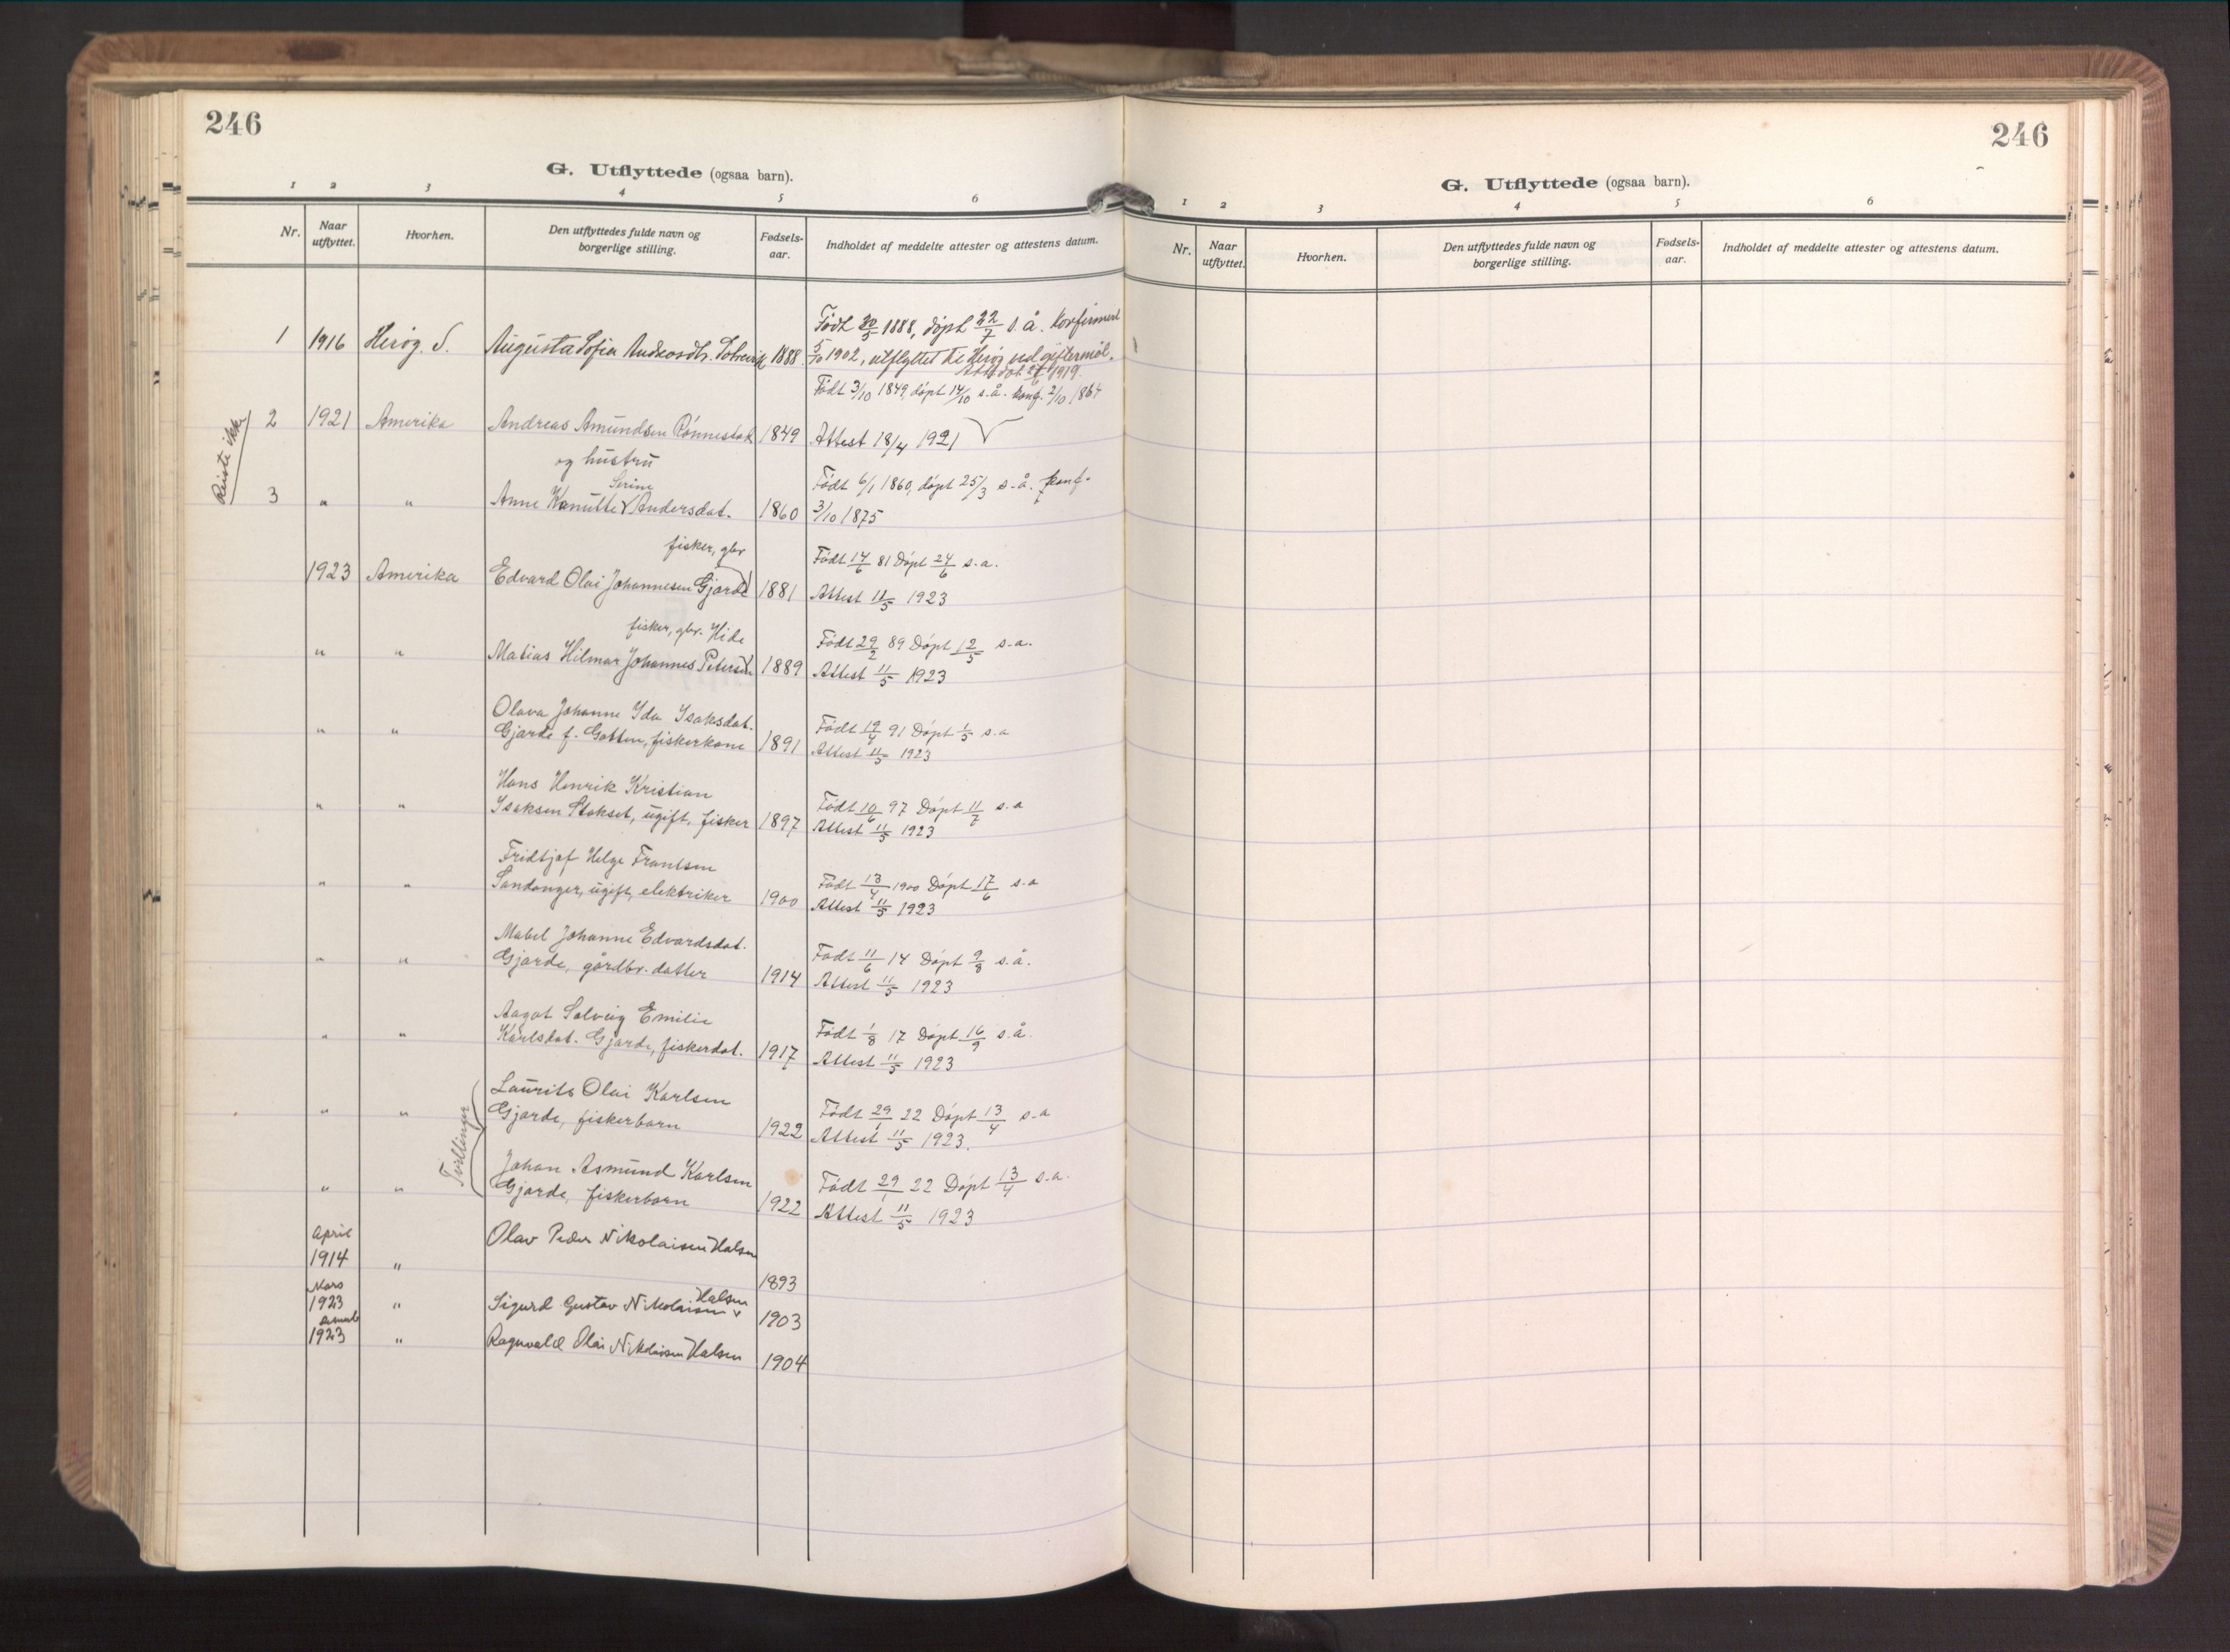 246
G. Utflyttede (ogsaa barn).
1 2 3 4 5 6
Nr. Naar utflyttet. Hvorhen. Den utflyttedes fulde navn og borgerlige stilling. Fødsels-aar. Indholdet af meddelte attester og attestens datum.
Født 20/5 1888, døpt 22/7 s. å. Konfirmert
1 1916 Herøy. S. Augusta Sofia 1888 5/10 1902, utflyttet til Herøy ved giftermål.
1919.
Født 3/10 1849, døpt 14/10 s.å. konf. 2/10 1864
Reiste ikke
2 1921 Amerika Andreas Amundsen Rønnestad 1849 Attest 18/4 1921
og hustru
Serine
Født 6/1 1860, døpt 25/3 s.å. konf.
3 " " Anne Kanutte Andersdat. 1860 3/10 1875
fisker, gbr
Født 14/6 81 Døpt 24/6 s.a.
1923 Amerika Edvard Olai Johannesen Gjerde 1881 Attest 11/5 1923
fisker, gbr. Hide
Født 29/2 89 Døpt 12/5 s.a.
" " Matias Hilmar Johannes Petersen 1889 Attest 11/5 1923
Olava Johanne Ida Isaksdat.
Født 19/4 91 Døpt 1/5 s.a
" " Gjerde f. Gotten, fiskerkone 1891 Attest 11/5 1923
Hans Henrik Kristian
Født 10/6 97 Døpt 11/7 s.a
" " Isaksen Stokset, ugift, fisker 1897 Attest 11/5 1923
Fridtjof Helge Frantsen
Født 13/4 1900 Døpt 17/6 s.a
" " Sandanger, ugift, elektriker 1900 Attest 11/5 1923
Mabel Johanne Edvardsdat.
Født 11/6 14 Døpt 9/8 s.å.
" " Gjerde, gårdbr. datter 1914 Attest 11/5 1923
Aagot Solveig Emilie
Født 1/8 17 Døpt 16/9 s.å.
" " Karlsdat. Gjerde, fiskerdat. 1917 Attest 11/5 1923
Tvillinger
Laurits Olai Karlsen
Født 29/1 22 Døpt 13/4 s.a
" " Gjerde, fiskerbarn 1922 Attest 11/5 1923.
Johan Asmund Karlsen
Født 29/1 22 Døpt 13/4 s.a.
" " Gjerde, fiskerbarn 1922 Attest 11/5 1923
April
1914 " Olav Peder Nikolaisen Halsen 1893
Mars
1923 " Sigurd Gustav Nikolaisen Halsen 1903
1923 " Ragnvald Olai Nikolaisen Halsen 1904
246
G. Utflyttede (ogsaa barn).
1 2 3 4 5 6
Nr. Naar utflyttet. Hvorhen. Den utflyttedes fulde navn og borgerlige stilling. Fødsels-aar. Indholdet af meddelte attester og attestens datum.